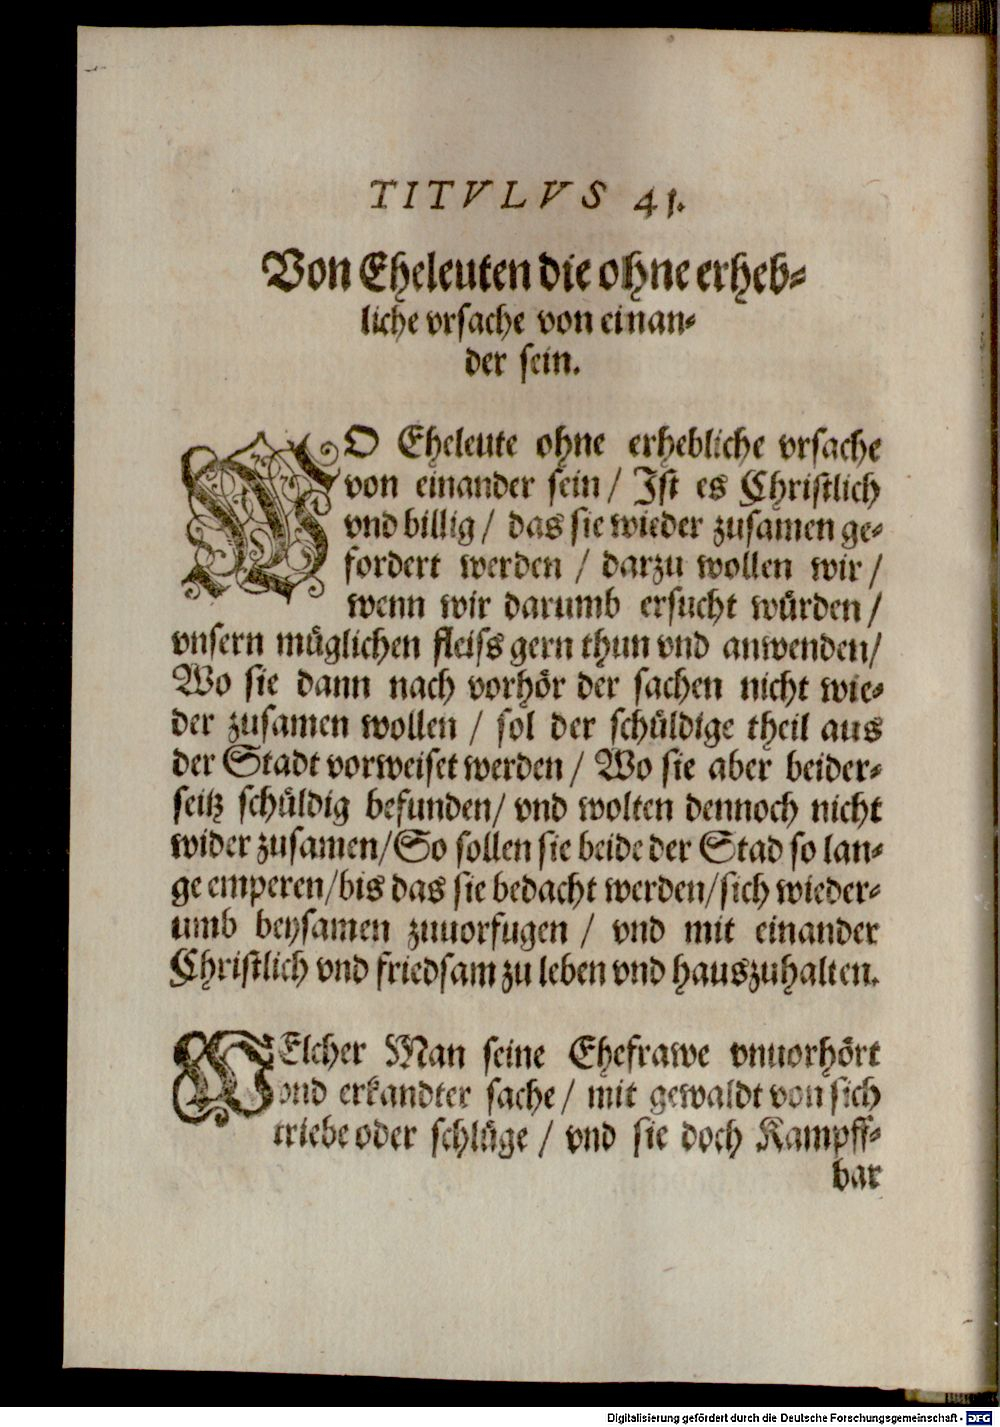 TITVLVS 41.
Von Eheleuten die ohne erheb-
liche vrsache von einan-
der sein.
WO Eheleute ohne erhebliche vrsache
von einander sein / Ist es Christlich
vnd billig / das sie wieder zusamen ge-
fordert werden / darzu wollen wir /
wenn wir darumb ersucht würden /
vnsern müglichen fleiss gern thun vnd anwenden /
Wo sie dann nach vorhör der sachen nicht wie-
der zusamen wollen / sol der schüldige theil aus
der Stadt vorweiset werden / Wo sie aber beider-
seitz schüldig befunden / vnd wolten dennoch nicht
wider zusamen / So sollen sie beide der Stad so lan-
ge emperen / bis das sie bedacht werden / sich wieder-
umb beysamen zuuorfugen / vnd mit einander
Christlich vnd friedsam zu leben vnd hauszuhalten.
WElcher Man seine Ehefrawe vnuorhört
vnd erkandter sache / mit gewaldt von sich
triebe oder schlüge / vnd sie doch Kampff-
bar
Digitalisierung gefördert durch die Deutsche Forschungsgemeinschaft - DFG